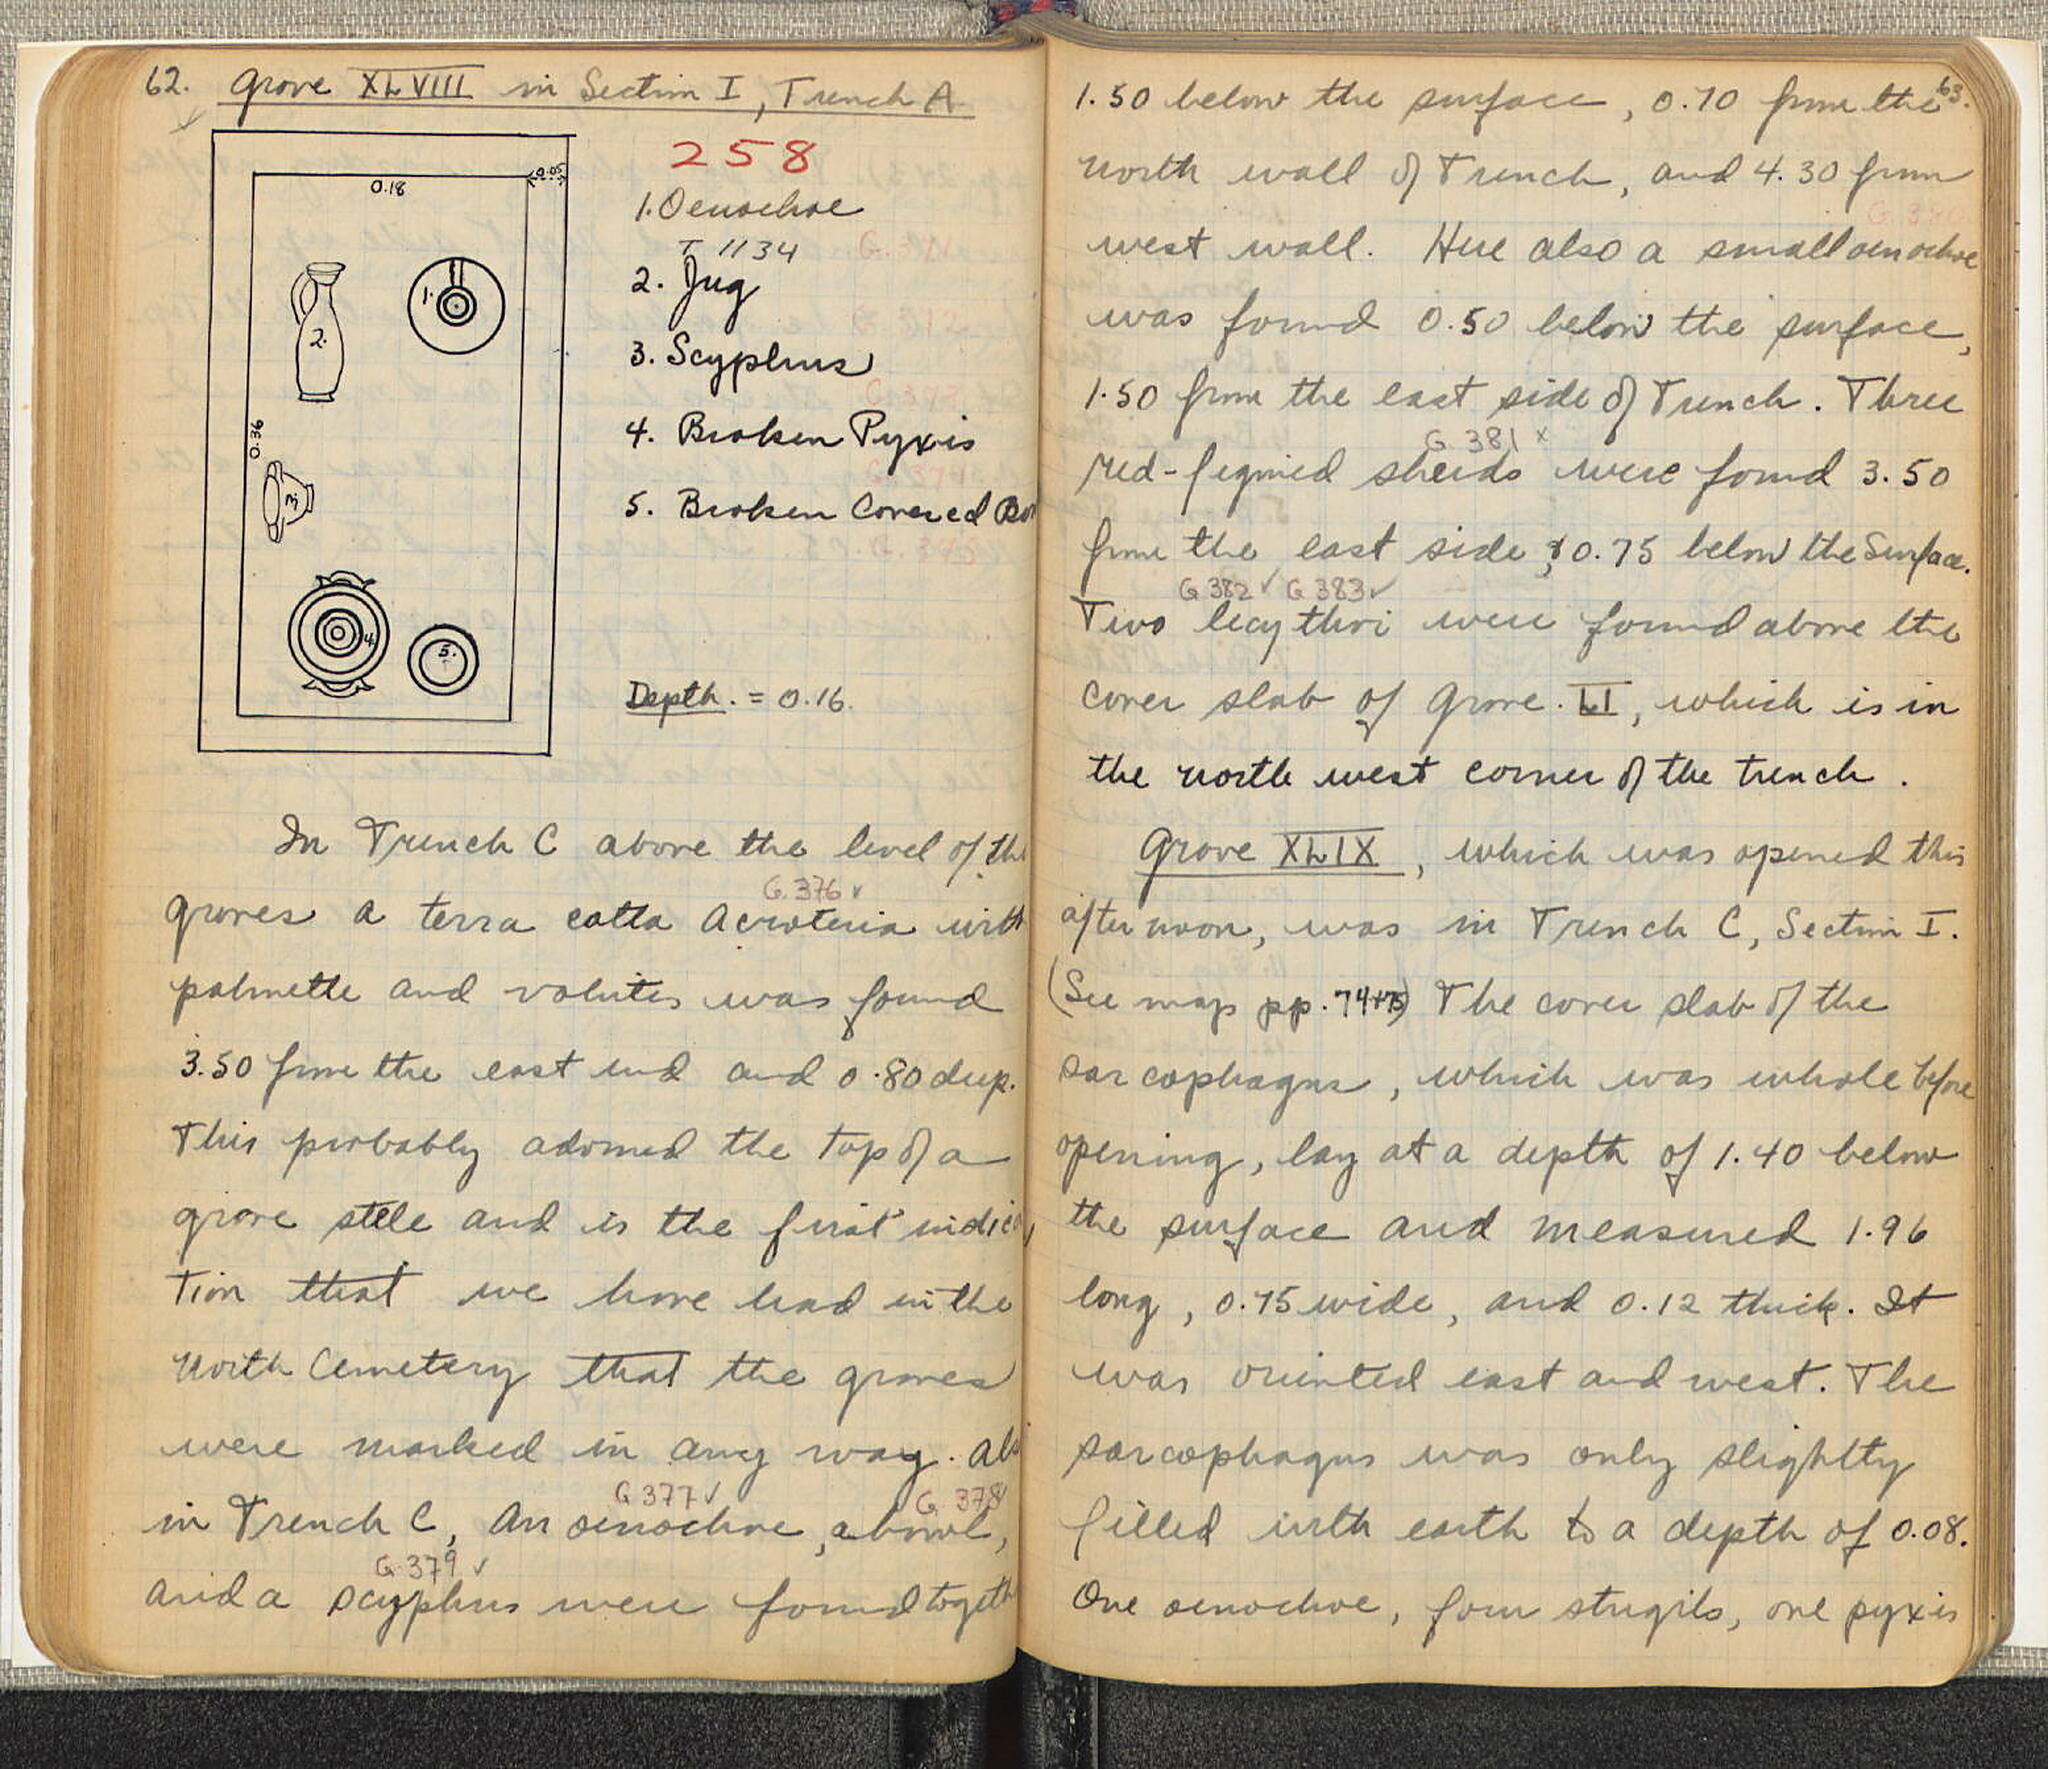 62. Grave XLVIII in Section I, Trench A.
258
0.18
0.05
0.36
1.
2.
3.
4.
5.
1. Oenochoe
T 1134
G. 371
2. Jug
G. 372
3. Scyphus
G. 373
4. Broken Pyxis
G. 374
5. Broken Covered
G. 375
Depth. = 0.16.
In Trench C above the level of the
G. 376 ✓
graves a terra cotta Acroteria with
palmette and volutes was found
3.50 from the east end and 0.80 deep.
This probably adorned the top of a
grave stele and is the first indica
tion that we have had in the
North Cemetery that the graves
were marked in any way. Also
G 377 ✓ G. 378 ✓
in Trench C, an oenochoe, a bowl,
G. 379 ✓
and a scyphus were found togeth
63.
1.50 below the surface, 0.70 from the
north wall of Trench, and 4.30 from
G. 380
west wall. Here also a small oenochoe
was found 0.50 below the surface,
1.50 from the east side of Trench. Three
G 381 x
red-figured sherds were found 3.50
from the east side, & 0.75 below the Surface.
G 382 ✓ G 383 ✓
Two lecythoi were found above the
cover slab of Grave. LI, which is in
the north west corner of the trench.
Grave XLIX, which was opened this
afternoon, was in Trench C, Section I.
(See map pp. 74+75) The cover slab of the
sarcophagus, which was whole before
opening, lay at a depth of 1.40 below
the surface and measured 1.96
long, 0.75 wide, and 0.12 thick. It
was oriented east and west. The
sarcophagus was only slightly
filled with earth to a depth of 0.08.
One oenochoe, four strigils, one pyxis